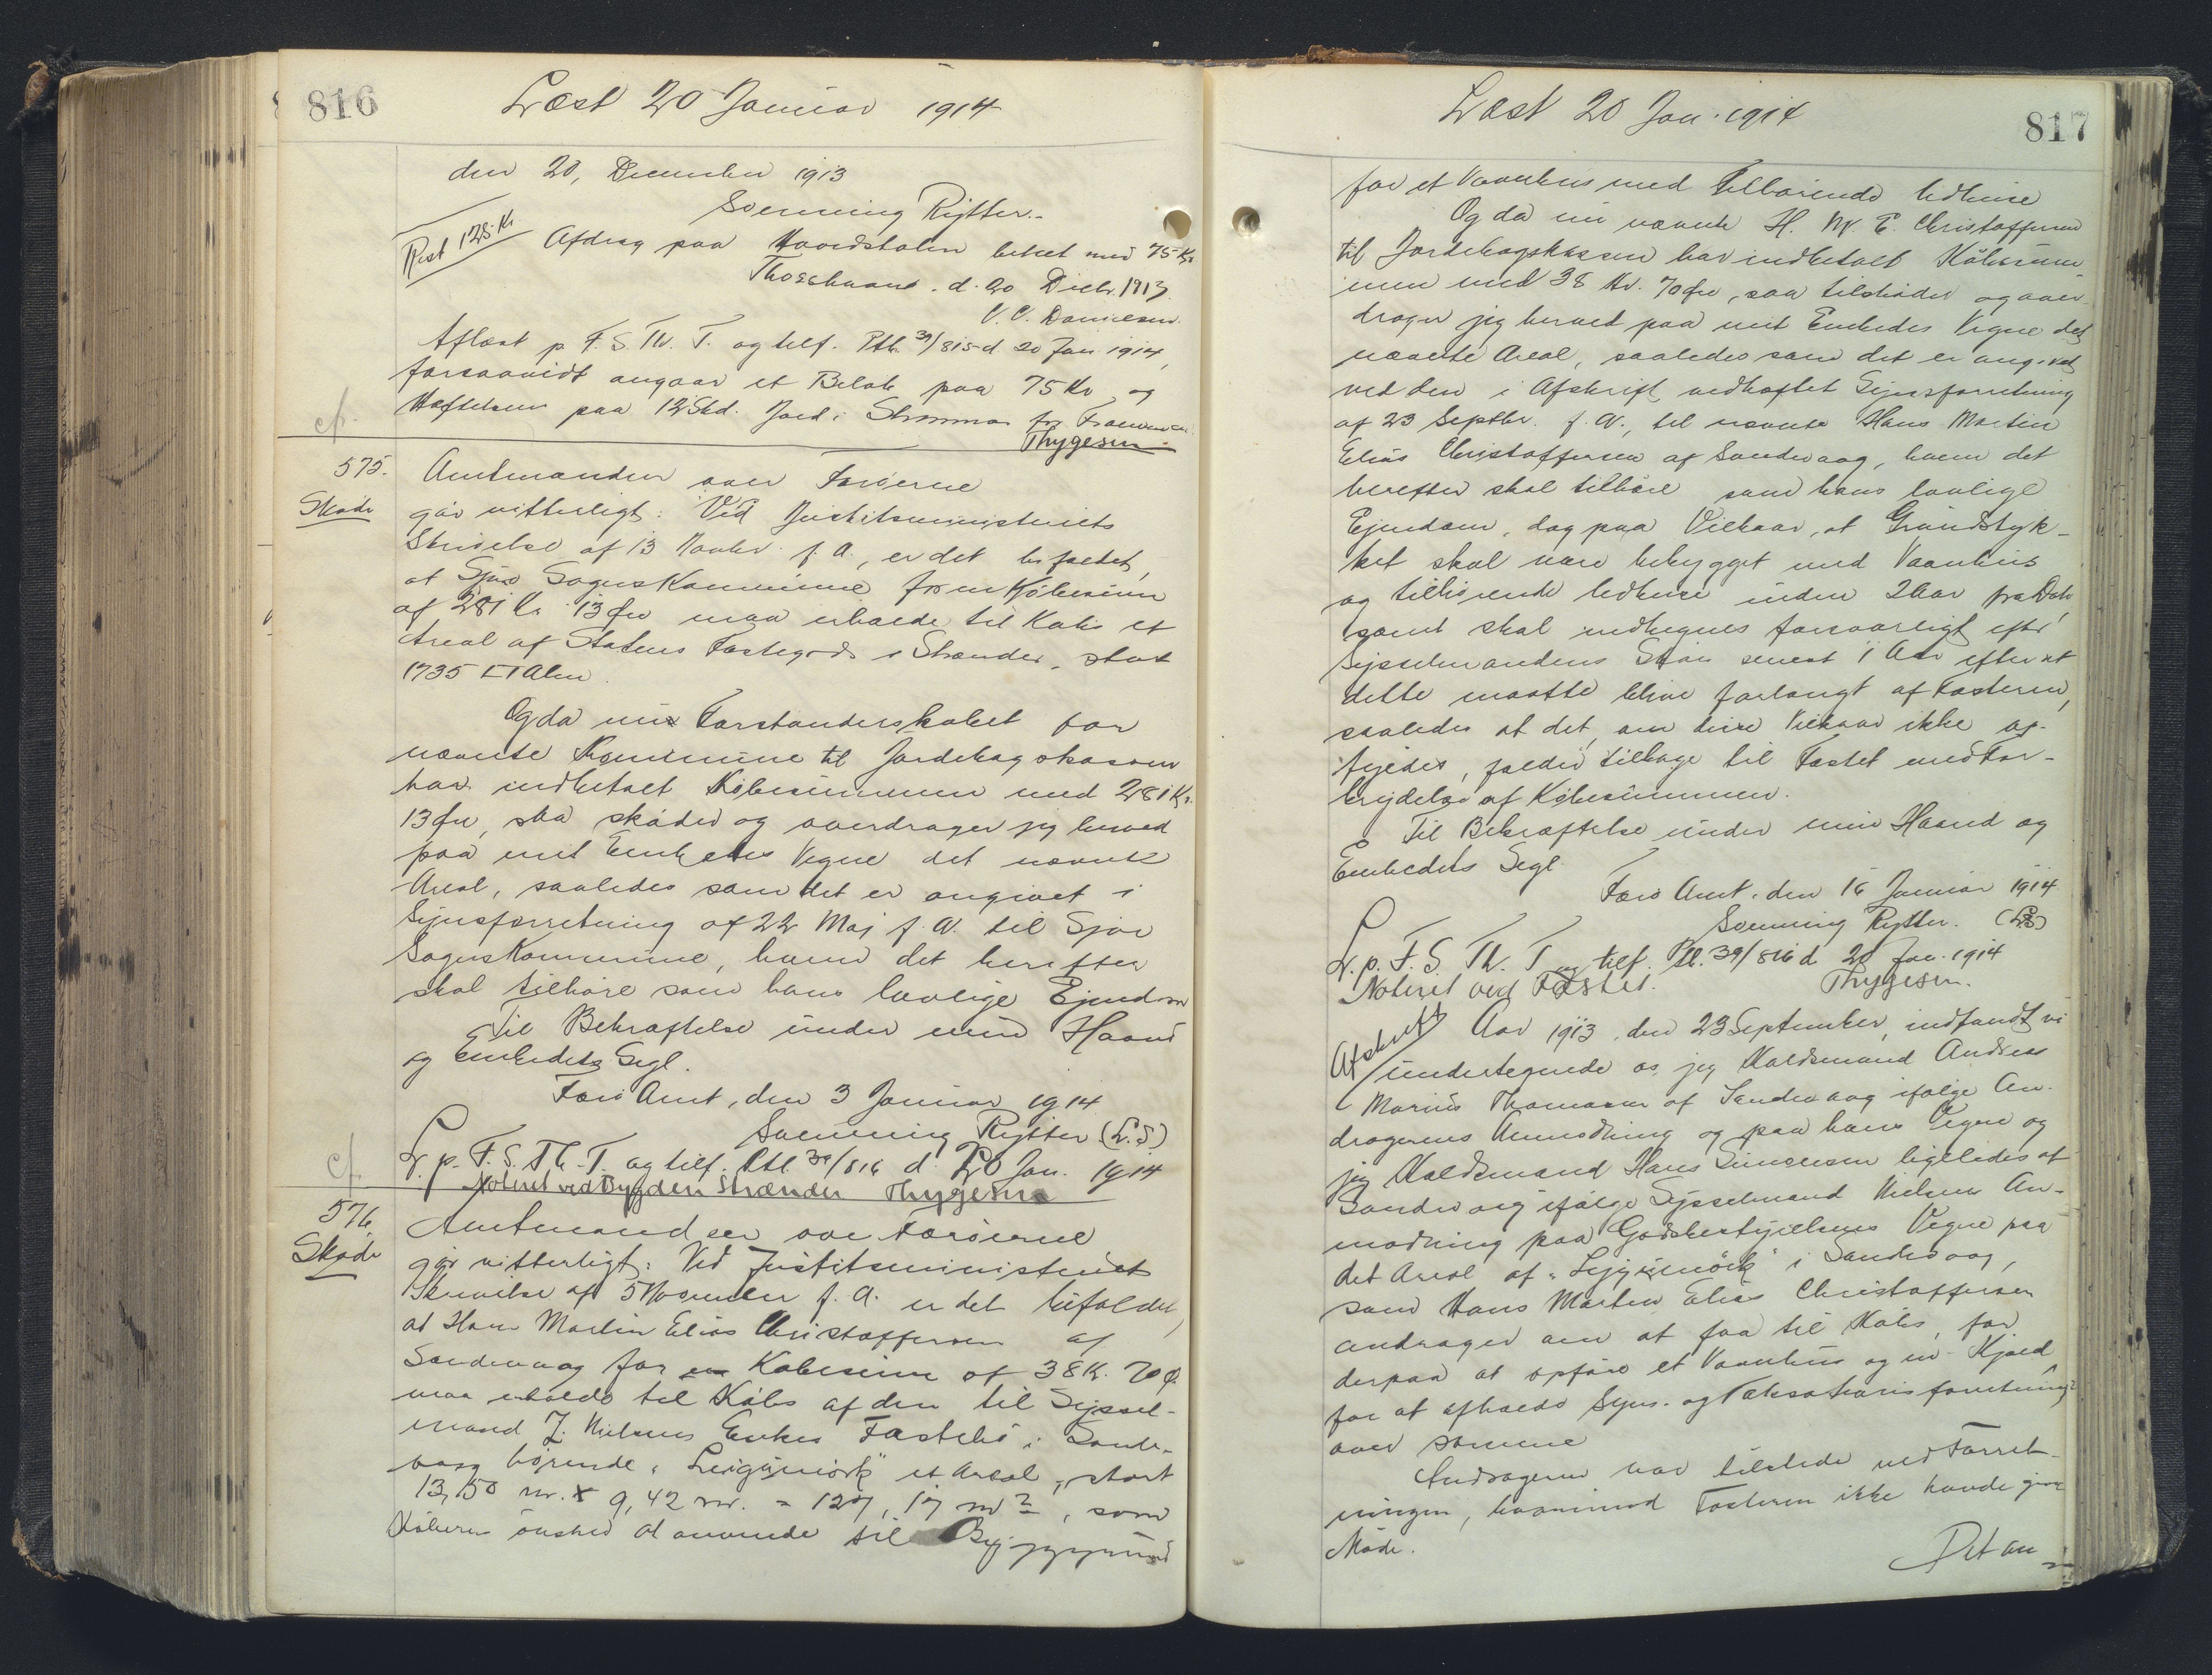 816
Læst 20 Januar 1914
den 20, December 1913
Svenning Rytter.
Rest 125 Kr
Afdrag paa Hovedstolen betalt med 75 Kr
Thorshavn. d. 20 Decbr. 1913.
V. C. Danielsen.
Aflæst p. F. S. Th. T. og tilf. Ptb. 39/815 d 20 Jan 1914,
forsaavidt angaar et Beløb paa 75 Kr og
Hæftelsen paa 12 Skd. Jord i
Thygesen.
cf.
575.
Skøde
Amtmanden over Færøerne
gør vitterligt: Ved Justitsministeriets
Skrivelse af 13 Novbr. f. A., er det bifaldet,
at Sjov Sognskommune for en Købesum
af 281 Kr. 13 Øre maa erholde til Købs et
Areal af Statens Fæstegods i Strænder, stort
1735 □ Alen.
Og da nu Forstanderskabet for
nævnte Kommune til Jordebogskassen
har indbetalt Købesummen med 281 Kr.
13 Øre, saa skøder og overdrager jeg herved
paa mit Embedes Vegne det nævnte
Areal, saaledes som det er angivet i
Synsforretning af 22 Maj f. A. til Sjov
Sognskommune, hvem det herefter
skal tilhøre som hans lovlige Ejendom
Til Bekræftelse under min Haand
og Embedets Segl.
Færø Amt, den 3 Januar 1914
Svenning Rytter (L.S.)
L. p. F. S. Th. T. og tilf. Ptb. 39/816 d. 20 Jan. 1914
Noteret ved Bygden Strænder Thygesen
cf.
576.
Skøde
Amtmanden over Færøerne
gør vitterligt: Ved Justitsministeriets
Skrivelse af 5 November f. A. er det bifaldet,
at Hans Martin Elias Christoffersen af
Sandevaag for en Købesum af 38 Kr. 70 Ø.
maa erholde til Købs af den til Syssel-
mand J. Nielsens Enkes Fæstebo i Sande-
vaag hørende "Leigumørk" et Areal, stort
13,50 m. x 9,42 m. = 127,17 m², som
Køberen ønsker at anvende til Byggegrund
817
Læst 20 Jan. 1914
for et Vaanhus med tilhørende Udhuse
Og da nu nævnte H. M. E. Christoffersen
til Jordebogskassen har indbetalt Købesum-
men med 38 Kr. 70 Øre, saa tilskøder og over-
drager jeg herved paa mit Embedes Vegne det
nævnte Areal, saaledes som det er angivet
ved den i Afskrift vedhæftet Synsforretning
af 23 Septbr. f. A., til nævnte Hans Martin
Elias Christoffersen af Sandevaag, hvem det
herefter skal tilhøre som hans lovlige
Ejendom, dog paa Vilkaar, at Grundstyk-
ket skal være bebygget med Vaanhus
og tilhørende Udhuse inden 2 Aar fra Dato,
samt skal indhegnes forsvarligt efter
Sysselmandens Skøn senest 1 Aar efter at
dette maatte blive forlangt af Fæsteren,
saaledes at det, om disse Vilkaar ikke op-
fyldes, falder tilbage til Fæstet med For-
brydelse af Købesummen.
Til Bekræftelse under min Haand og
Embedets Segl
Færø Amt, den 16 Januar 1914
Svenning Rytter. (LS)
L. p. F. S. Th. T og tilf. Ptb. 39/816 d 20 Jan. 1914
Noteret ved Fæstet. Thygesen.
Afskrift
Aar 1913, den 23 September, indfandt vi
undertegnede os, jeg Valdsmand Andreas
Marius Thomasen af Sandevaag ifølge An-
dragerens Anmodning og paa hans Vegne og
jeg Valdsmand Hans Simonsen ligeledes af
Sandevaag ifølge Sysselmand Nielsens An-
modning paa Godsbestyrelsens Vegne paa
det Areal af "Lejgumørk" i Sandevaag,
som Hans Martin Elias Christoffersen
andrager om at faa til Købs, for
derpaa at opføre et Vaanhus og en Kjæld
for at afholde Syns- og Taksationsforretning
over samme
Andrageren var tilstede ved Forret-
ningen, hvorimod Fæsteren ikke havde givet
Møde.
Det an-